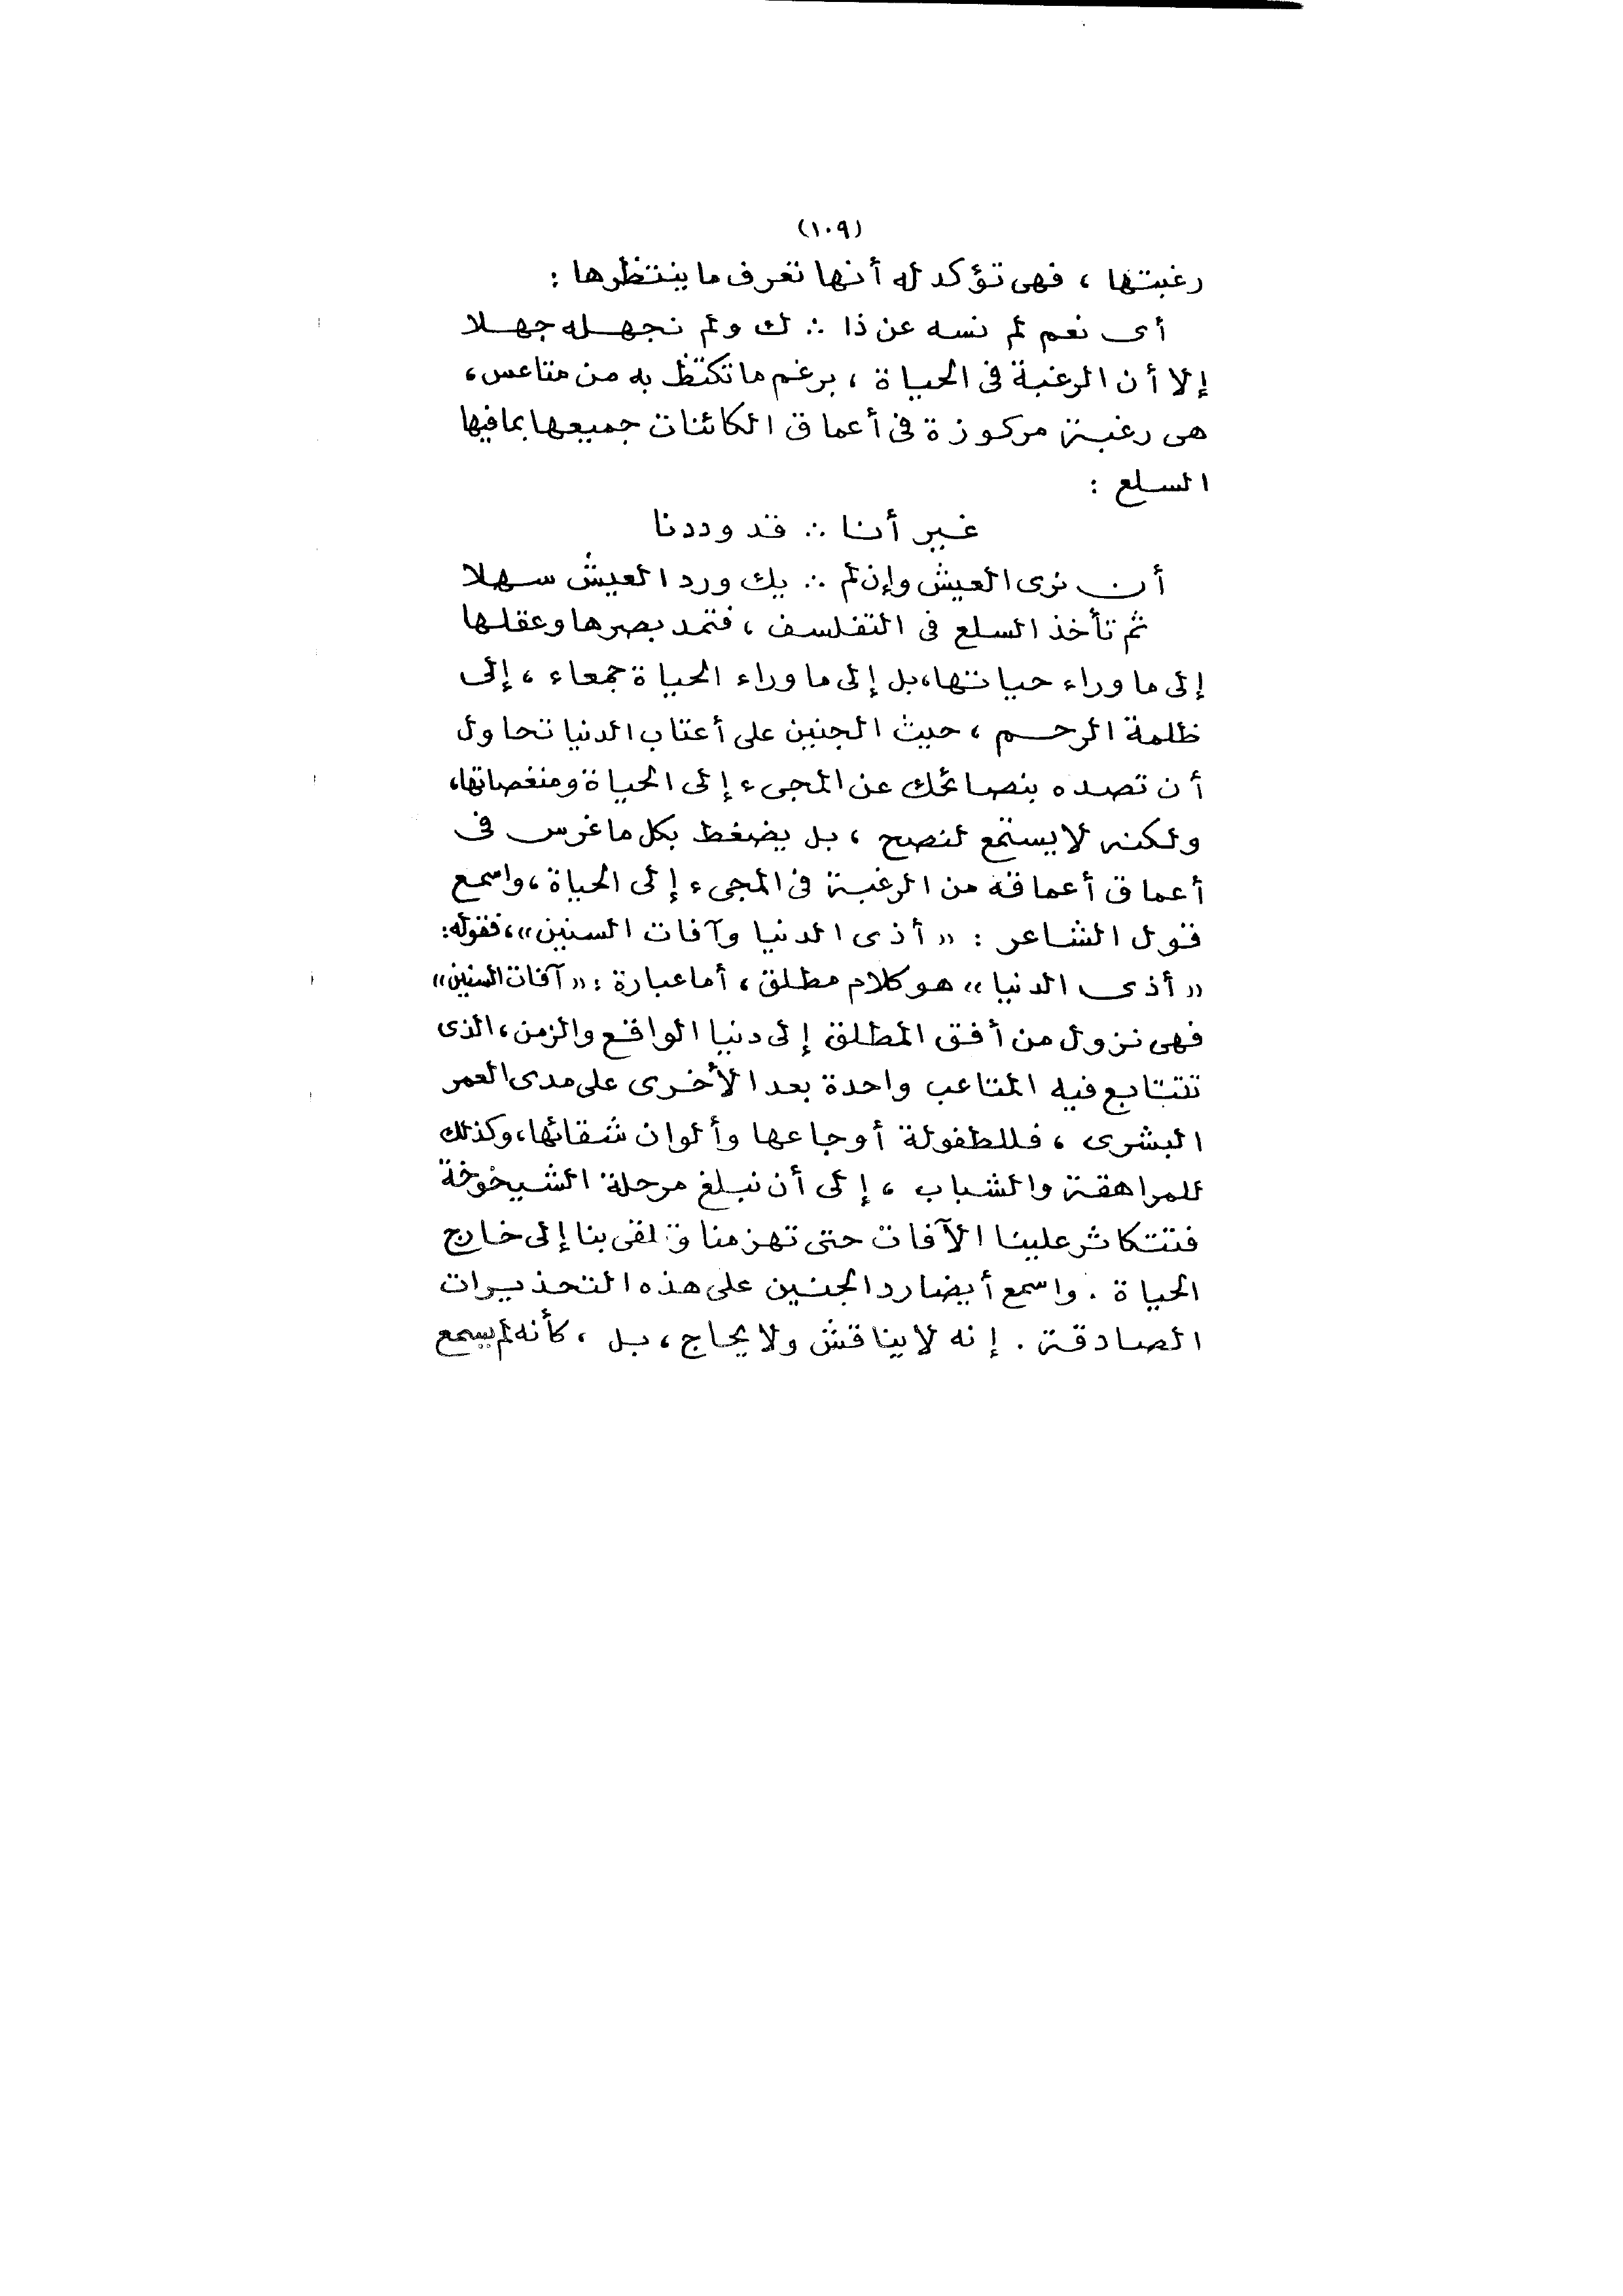 (١٠٩)
رغبتها ، فهى تؤكد له أنها تعرف ما ينتظرها :
أى نعم لم نسه عن ذا ∴ ك ولم نجهله جهلا
إلا أن الرغبة فى الحياة ، برغم ما تكتظ به من متاعس ،
هى رغبة مركوزة فى أعماق الكائنات جميعها بما فيها
السلع :
غير أنا ∴ قد وددنا
أن نرى العيش وإن لم ∴ يك ورد العيش سهلا
ثم تأخذ السلع فى التفلسف ، فتمد بصرها وعقلها
إلى ما وراء حياتها ، بل إلى ما وراء الحياة جمعاء ، إلى
ظلمة الرحم ، حيث الجنين على أعتاب الدنيا تحاول
أن تصده بنصائحك عن المجىء إلى الحياة ومنغصاتها ،
ولكنه لا يستمع لنصح ، بل يضغط بكل ما غرس فى
أعماق أعماقه من الرغبة فى المجىء إلى الحياة ، واسمع
قول الشاعر : « أذى الدنيا وآفات السنين » ، فقوله :
« أذى الدنيا » هو كلام مطلق ، أما عبارة : « آفات السنين »
فهى نزول من أفق المطلق إلى دنيا الواقع والزمن ، الذى
تتتابع فيه المتاعب واحدة بعد الأخرى على مدى العمر
البشرى ، فللطفولة أوجاعها وألوان شقائها ، وكذلك
للمراهقة والشباب ، إلى أن نبلغ مرحلة الشيخوخة
فتتكاثر علينا الآفات حتى تهزمنا وتلقى بنا إلى خارج
الحياة . واسمع أيضا رد الجنين على هذه التحذيرات
الصادقة . إنه لا يناقش ولا يحاج ، بل ، كأنه لم يسمع